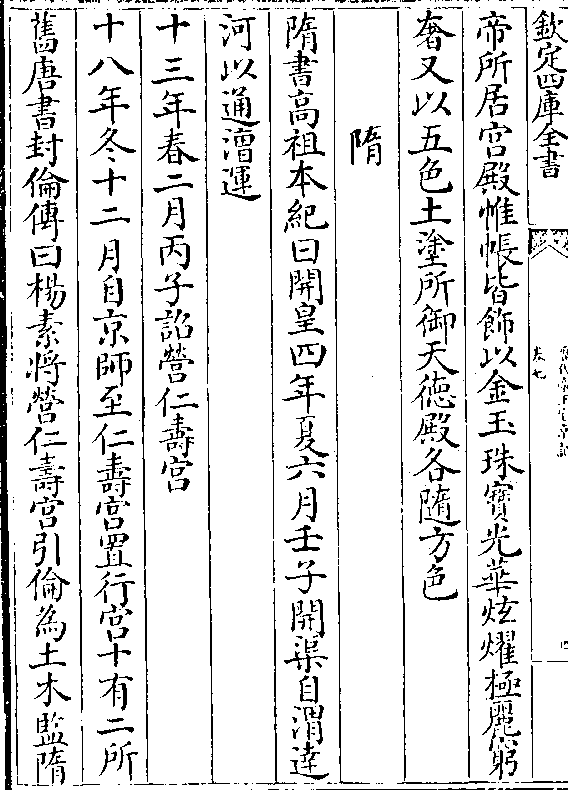 欽定四庫全書
卷七
帝所居宫殿帷帳皆飾以金玉珠寶光華炫燿極麗窮
奢又以五色土塗所御天徳殿各隨方色
隋
隋書髙祖本紀曰開皇四年夏六月壬子開渠自渭達
河以通漕運
十三年春二月丙子詔營仁壽宫
十八年冬十二月自京師至仁壽宫置行宫十有二所
舊唐書封倫傳曰楊素將營仁壽宫引倫為土木監隋